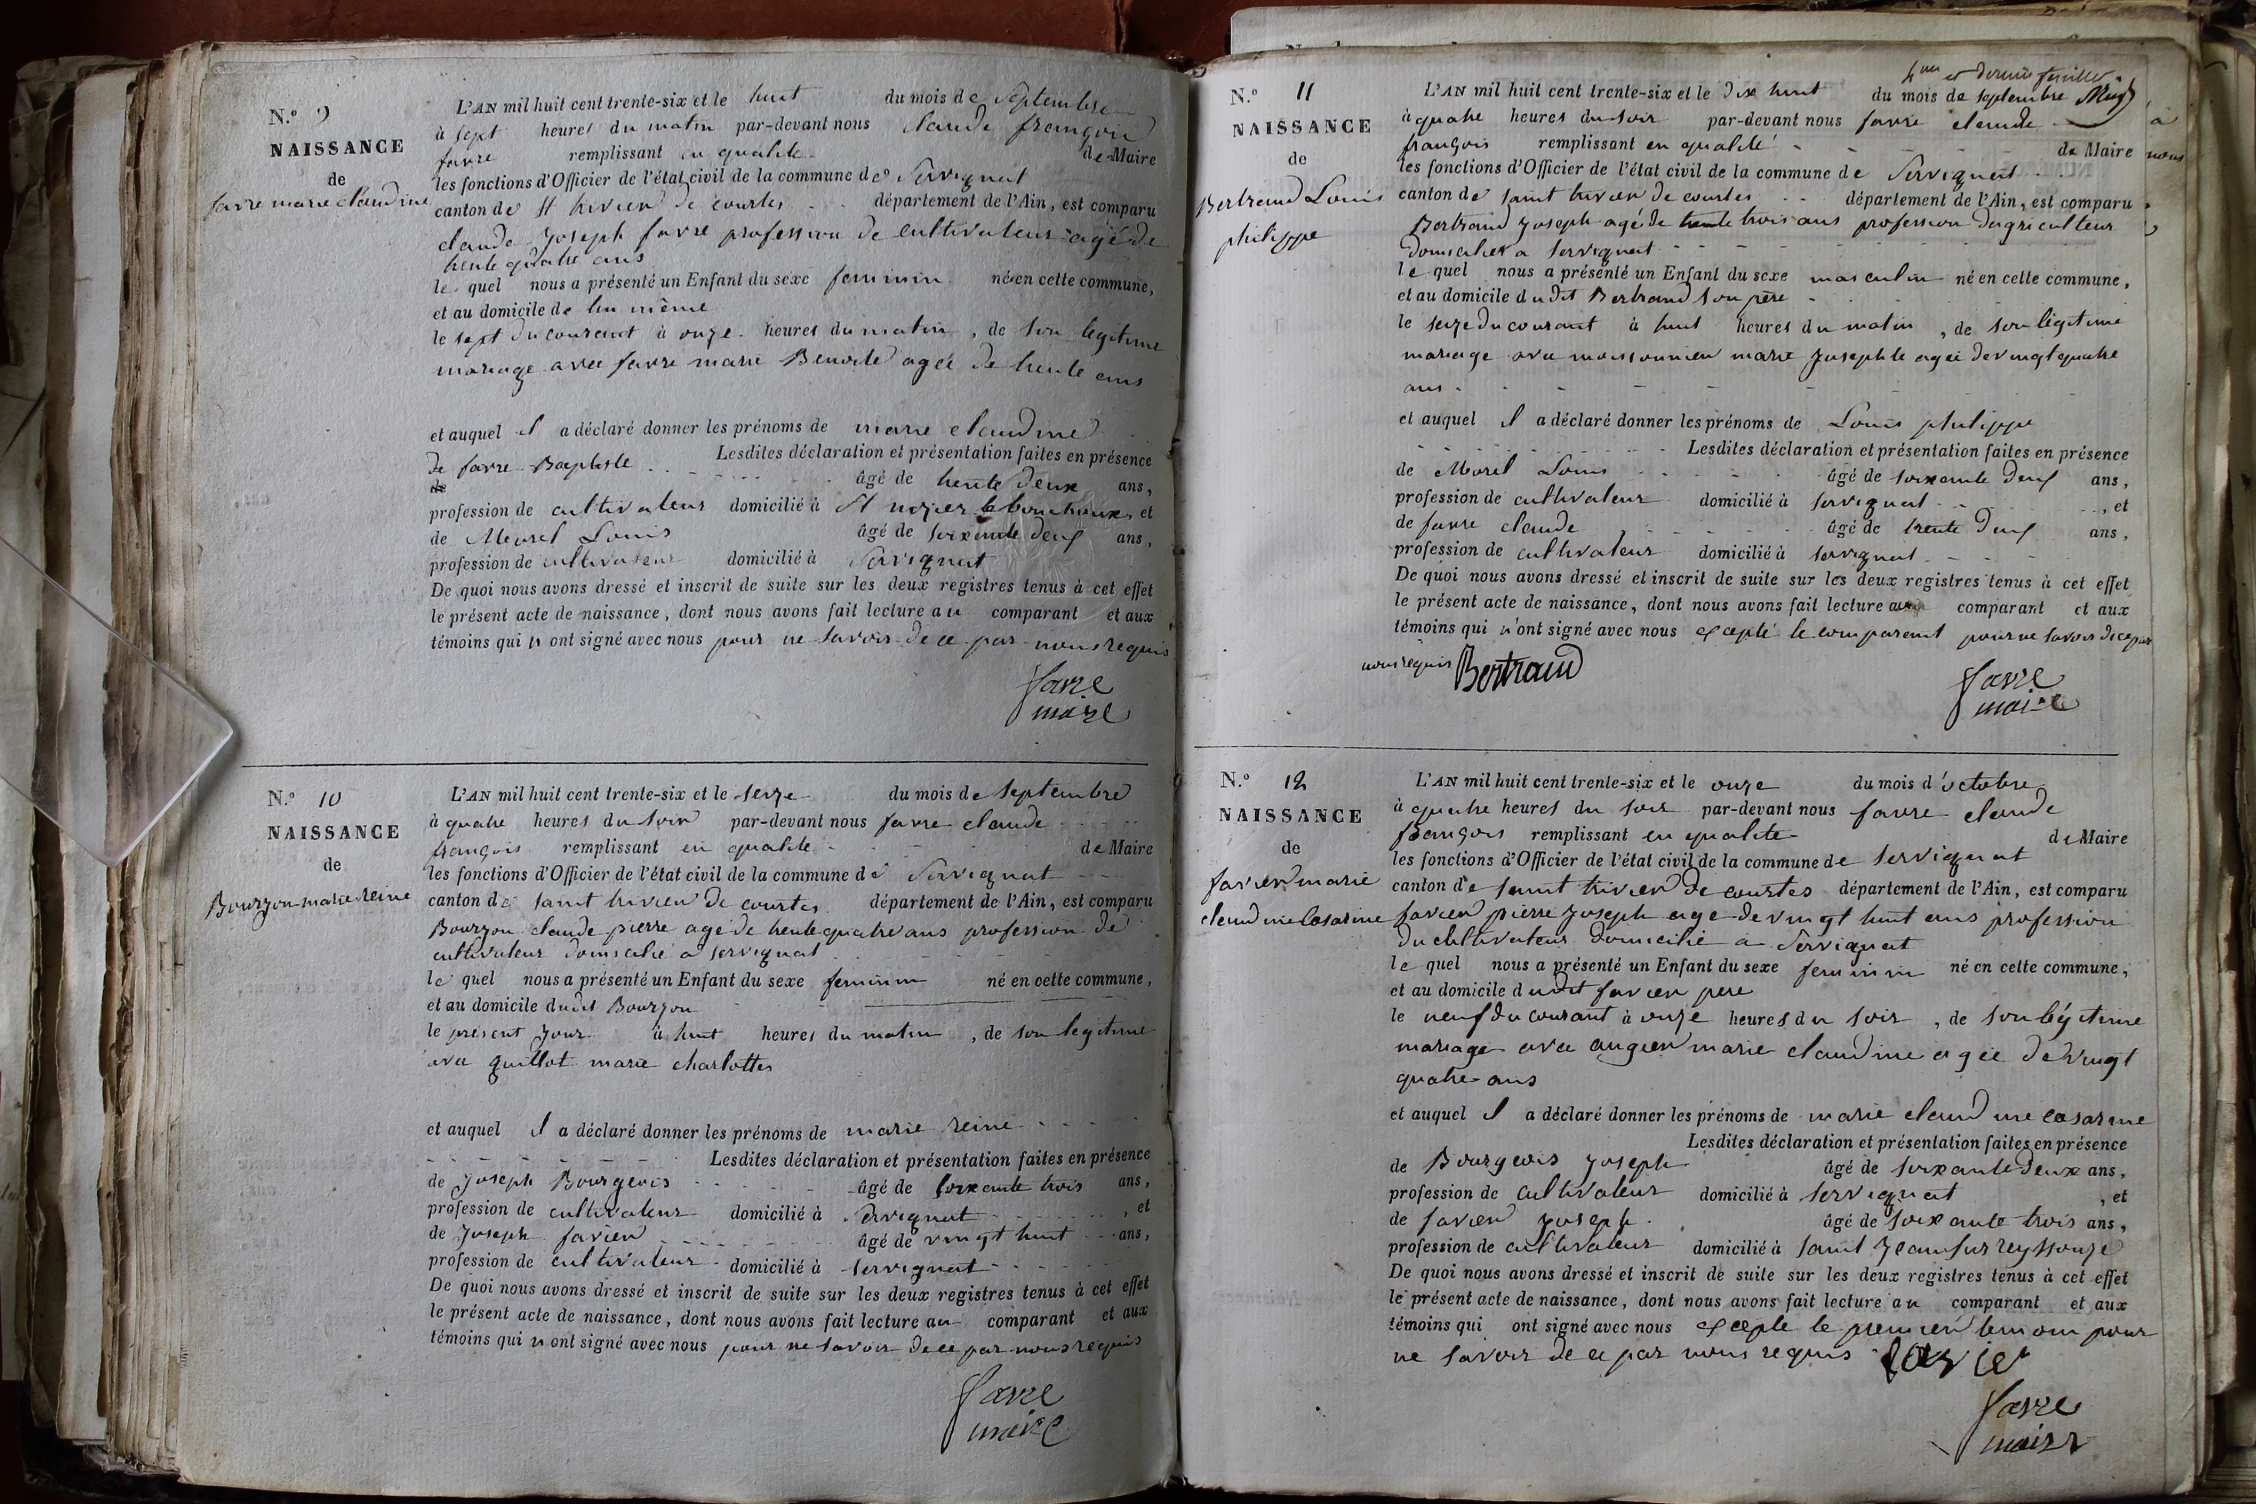 N.º 9
NAISSANCE
de
favre marie claudine
L'AN mil huit cent trente-six et le huit du mois de septembre
à sept heures du matin par-devant nous claude françois
favre remplissant en qualité de Maire
les fonctions d'Officier de l'état civil de la commune de Servignat
canton de St trivier de courtes département de l'Ain, est comparu
claude Joseph favre profession de cultivateur agé de
trente quatre ans
le quel nous a présenté un Enfant du sexe feminin né en cette commune,
et au domicile de lui même
le sept du courant à onze heures du matin, de son légitime
mariage avec favre marie Benoite agée de trente ans
et auquel il a déclaré donner les prénoms de marie claudine
Lesdites déclaration et présentation faites en présence
de favre Baptiste âgé de trente deux ans,
profession de cultivateur domicilié à St nizier le bouchoux, et
de Morel Louis âgé de soixante deux ans,
profession de cultivateur domicilié à Servignat
De quoi nous avons dressé et inscrit de suite sur les deux registres tenus à cet effet
le présent acte de naissance, dont nous avons fait lecture au comparant et aux
témoins qui n ont signé avec nous pour ne savoir de ce par nous requis
favre
maire
N.º 10
NAISSANCE
de
Bourzon marie reine
L'AN mil huit cent trente-six et le seize du mois de septembre
à quatre heures du soir par-devant nous favre claude
françois remplissant en qualité de Maire
les fonctions d'Officier de l'état civil de la commune de Servignat
canton de saint trivier de courtes département de l'Ain, est comparu
Bourzon claude pierre agé de trente quatre ans profession de
cultivateur domicilié a servignat
le quel nous a présenté un Enfant du sexe feminin né en cette commune,
et au domicile dudit Bourzon
le présent jour à huit heures du matin, de son legitime
avec guillot marie charlottes
et auquel il a déclaré donner les prénoms de marie reine
Lesdites déclaration et présentation faites en présence
de Joseph Bourgeois âgé de soixante trois ans,
profession de cultivateur domicilié à Servignat, et
de Joseph favier âgé de vingt huit ans,
profession de cultivateur domicilié à servignat
De quoi nous avons dressé et inscrit de suite sur les deux registres tenus à cet effet
le présent acte de naissance, dont nous avons fait lecture au comparant et aux
témoins qui n ont signé avec nous pour ne savoir de ce par nous requis
favre
maire
et dernier feuillet
N.º 11
NAISSANCE
de
Bertrand Louis
philippe
L'AN mil huit cent trente-six et le dix huit du mois de septembre
à quatre heures du soir par-devant nous favre claude
françois remplissant en qualité de Maire
les fonctions d'Officier de l'état civil de la commune de Servignat
canton de saint trivier de courtes département de l'Ain, est comparu
Bertrand Joseph agé de trente trois ans profession dagriculteur
domicilié a servignat
le quel nous a présenté un Enfant du sexe masculin né en cette commune,
et au domicile dudit Bertrand son père
le seize du courant à huit heures du matin, de son légitime
mariage avec moissonnier marie Josephte agée de vingt quatre
ans
et auquel il a déclaré donner les prénoms de Louis philippe
Lesdites déclaration et présentation faites en présence
de Morel Louis âgé de soixante deux ans,
profession de cultivateur domicilié à servignat, et
de favre claude âgé de trente deux ans,
profession de cultivateur domicilié à servignat
De quoi nous avons dressé et inscrit de suite sur les deux registres tenus à cet effet
le présent acte de naissance, dont nous avons fait lecture au comparant et aux
témoins qui n'ont signé avec nous excepté le comparant pour ne savoir de ce par
nous requis Bertrand
favre
maire
N.º 12
NAISSANCE
de
favier marie
claudine Cesarine
L'AN mil huit cent trente-six et le onze du mois d'octobre
à quatre heures du soir par-devant nous favre claude
françois remplissant en qualité de Maire
les fonctions d'Officier de l'état civil de la commune de servignat
canton de saint trivier de courtes département de l'Ain, est comparu
favier pierre Joseph age de vingt huit ans profession
du cultivateur domicilié a Servignat
le quel nous a présenté un Enfant du sexe feminin né en cette commune,
et au domicile dudit favier pere
le neuf du courant à onze heures du soir, de son légitime
mariage avec augier marie claudine agée de vingt
quatre ans
et auquel il a déclaré donner les prénoms de marie claudine cesarine
Lesdites déclaration et présentation faites en présence
de Bourgeois Joseph âgé de soixante deux ans,
profession de cultivateur domicilié à servignat, et
de favier Joseph âgé de soixante trois ans,
profession de cultivateur domicilié à saint Jean sur reyssouze
De quoi nous avons dressé et inscrit de suite sur les deux registres tenus à cet effet
le présent acte de naissance, dont nous avons fait lecture au comparant et aux
témoins qui ont signé avec nous excepte le premier temoin pour
ne savoir de ce par nous requis favier
favre
maire